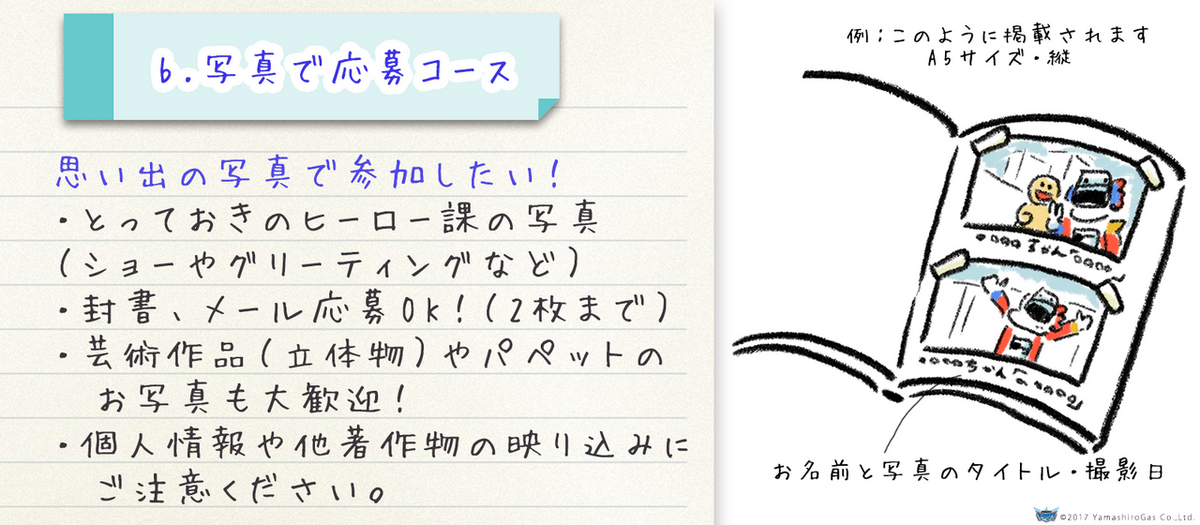 6.写真で応募コース
思い出の写真で参加したい!
・とっておきのヒーロー課の写真
(ショーやグリーティングなど)
・封書、メール応募OK!(2枚まで)
・芸術作品(立体物)やパペットの
お写真も大歓迎!
・個人情報や他著作物の映り込みに
ご注意ください。
例;このように掲載されます
A5サイズ・縦
ちゃん
ちゃん
お名前と写真のタイトル・撮影日
©2017 YamashiroGas Co.,Ltd.